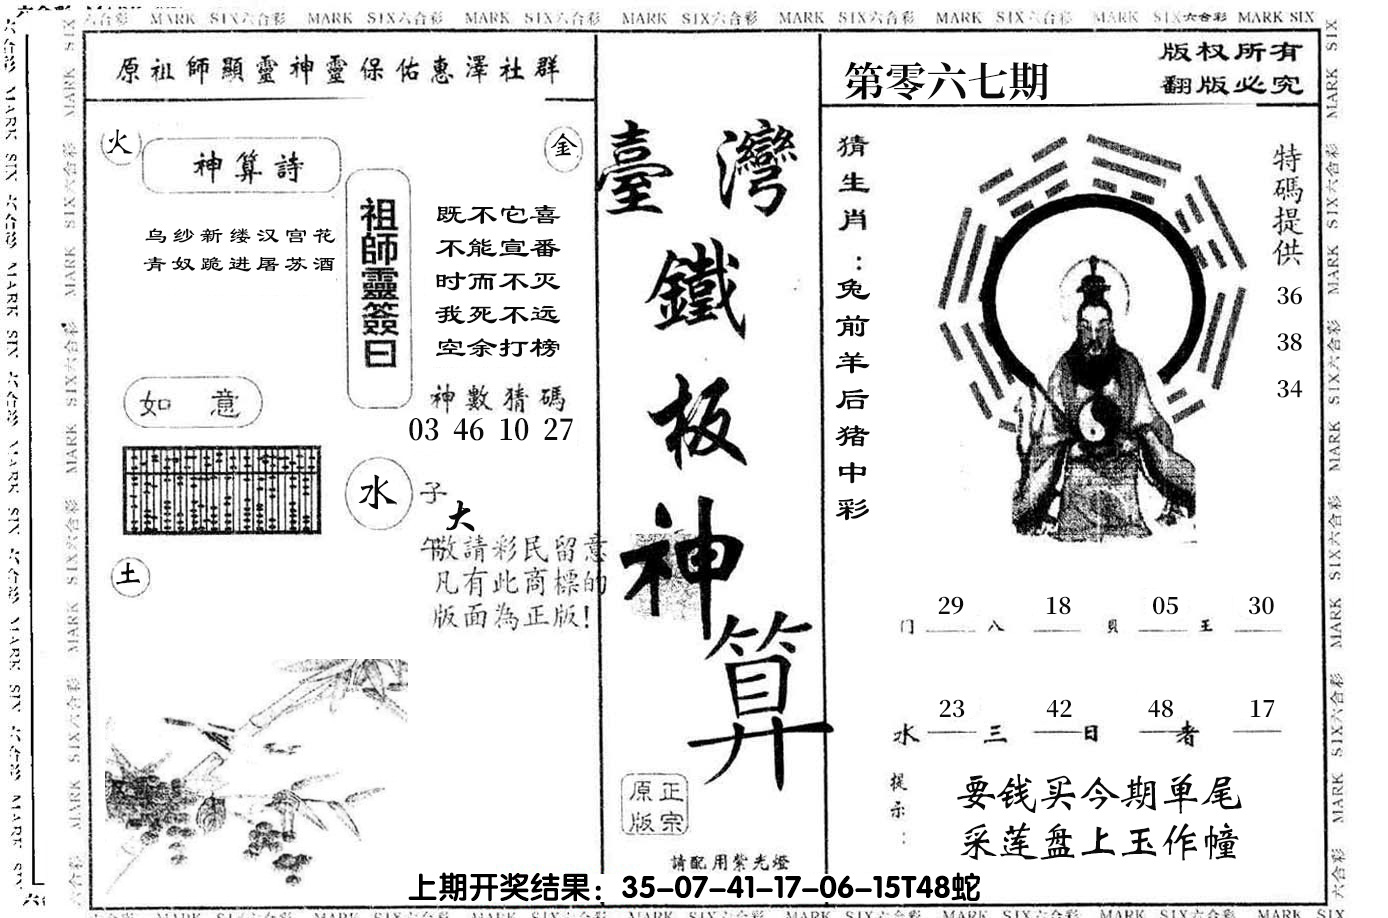 MARK SIX六合彩 MARK SIX六合彩 MARK SIX六合彩 MARK SIX六合彩 MARK SIX六合彩 MARK SIX六合彩 MARK SIX六合彩 MARK SIX
原祖師顯靈神靈保佑惠澤社群
火
金
神算詩
乌纱新缕汉宫花
青奴跪进屠苏酒
祖師靈簽曰
既不它喜
不能宣番
时而不灭
我死不远
空余打榜
神數猜碼
03 46 10 27
如意
水
子
大
午
敬請彩民留意
凡有此商標的
版面為正版!
土
臺灣
鐵
板
神
算
正宗
原版
請配用紫光燈
第零六七期
版权所有
翻版必究
猜生肖:兔前羊后猪中彩
特碼提供
36
38
34
29 18 05 30
门 八 貝 王
23 42 48 17
水 三 日 者
提示:
要钱买今期单尾
采莲盘上玉作幢
上期开奖结果：35-07-41-17-06-15T48蛇